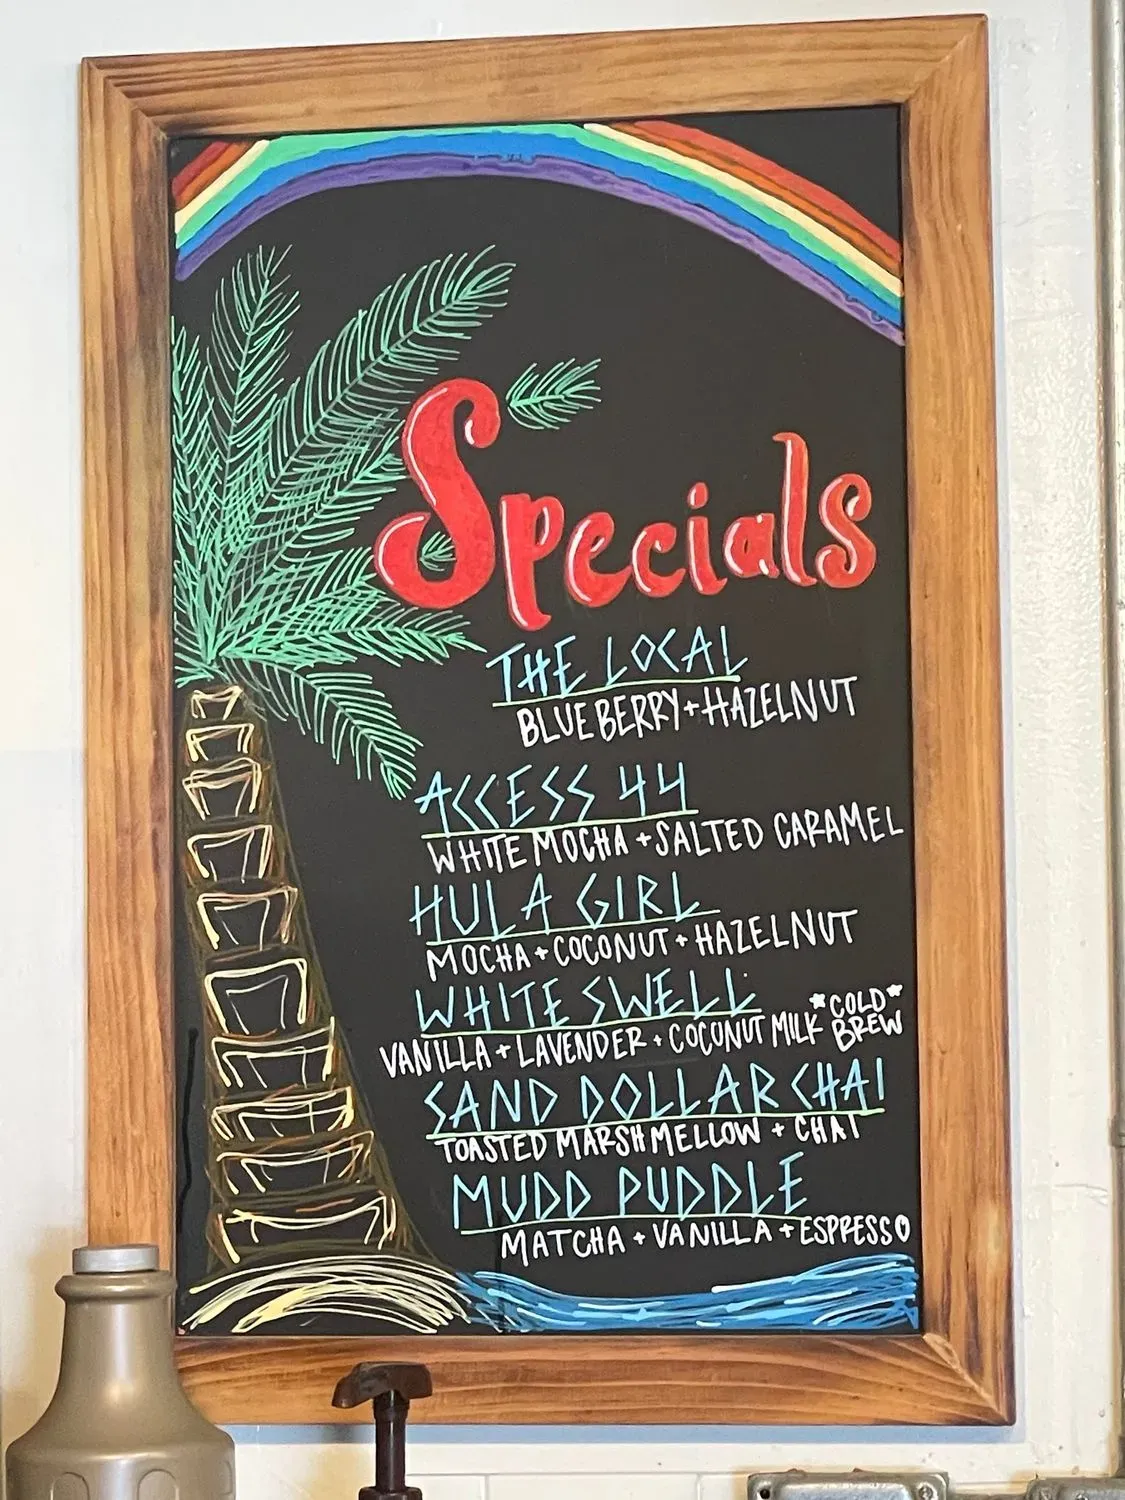 Specials
THE LOCAL
BLUEBERRY + HAZELNUT
ACCESS 44
WHITE MOCHA + SALTED CARAMEL
HULA GIRL
MOCHA + COCONUT + HAZELNUT
WHITE SWELL
VANILLA + LAVENDER + COCONUT MILK *COLD BREW*
SAND DOLLAR CHAI
TOASTED MARSHMELLOW + CHAI
MUDD PUDDLE
MATCHA + VANILLA + ESPRESSO